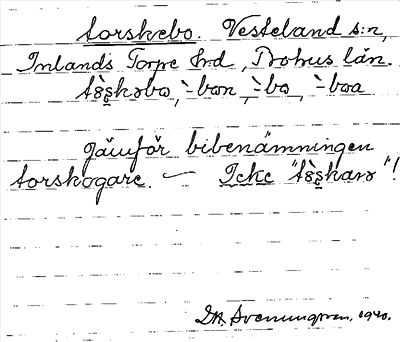 torskebo. Vesteland s:n,
Inlands Torpe hrd, Bohus län.
tɔ̀ṣkəbo, -̀bon, -̀bo, -̀boa
Jämför bibenämningen
torskogare. — Icke "tɔ̀ṣkarə"!
D.A. Svenungsson. 1940.